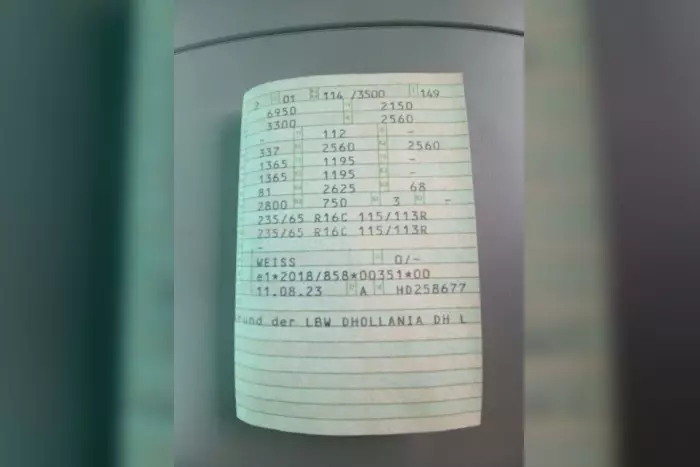 2 01 114 /3500 149
6950 2150
3300 2560
- 112 -
337 2560 2560
1365 1195 -
1365 1195 -
81 2625 68
2800 750 3 -
235/65 R16C 115/113R
235/65 R16C 115/113R
-
WEISS 0/-
e1*2018/858*00351*00
11.08.23 A HD258677
rund der LBW DHOLLANIA DH L